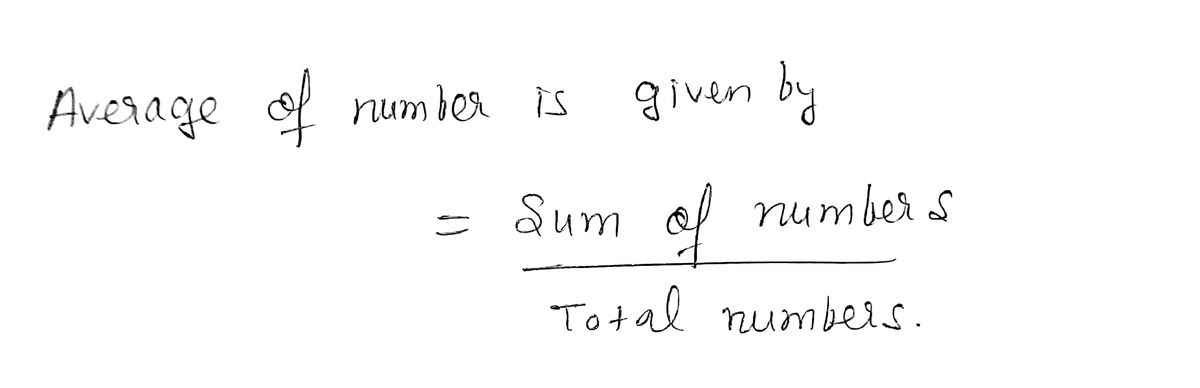 Average of number is given by
= Sum of numbers
Total numbers.